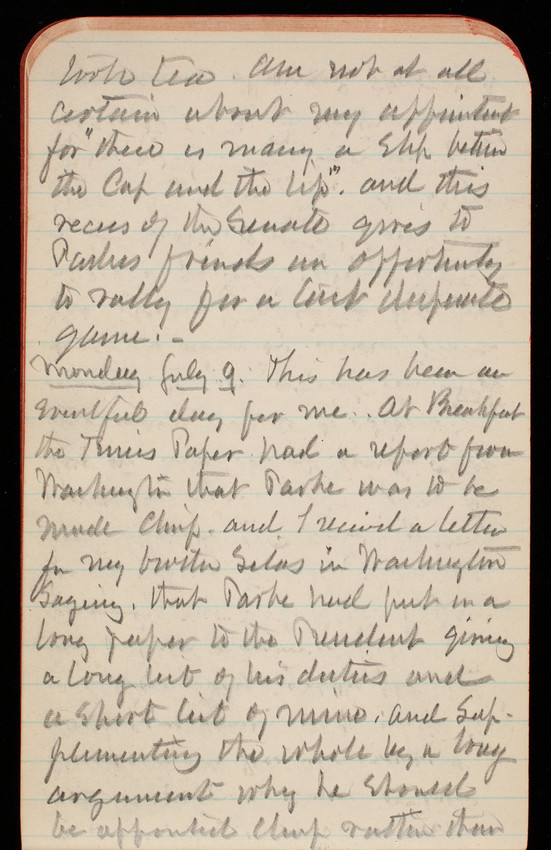 took tea. Am not at all
certain about my appointmt
for "there is many a Slip betwn
the Cup and the lip". and this
recess of the Senate gives to
Parkes friends an opportunity
to rally for a last desperate
game. -
Monday July 9. This has been an
Eventful day for me. At Breakfast
the Times Paper had a report from
Washington that Parke was to be
made Chief. and I received a letter
fr my brother Silas in Washington
Saying. that Parke had put in a
long paper to the President giving
a long list of his duties and
a Short list of mine. and Sup-
plementing the whole by a long
argument why he Should
be appointed Chief rather than